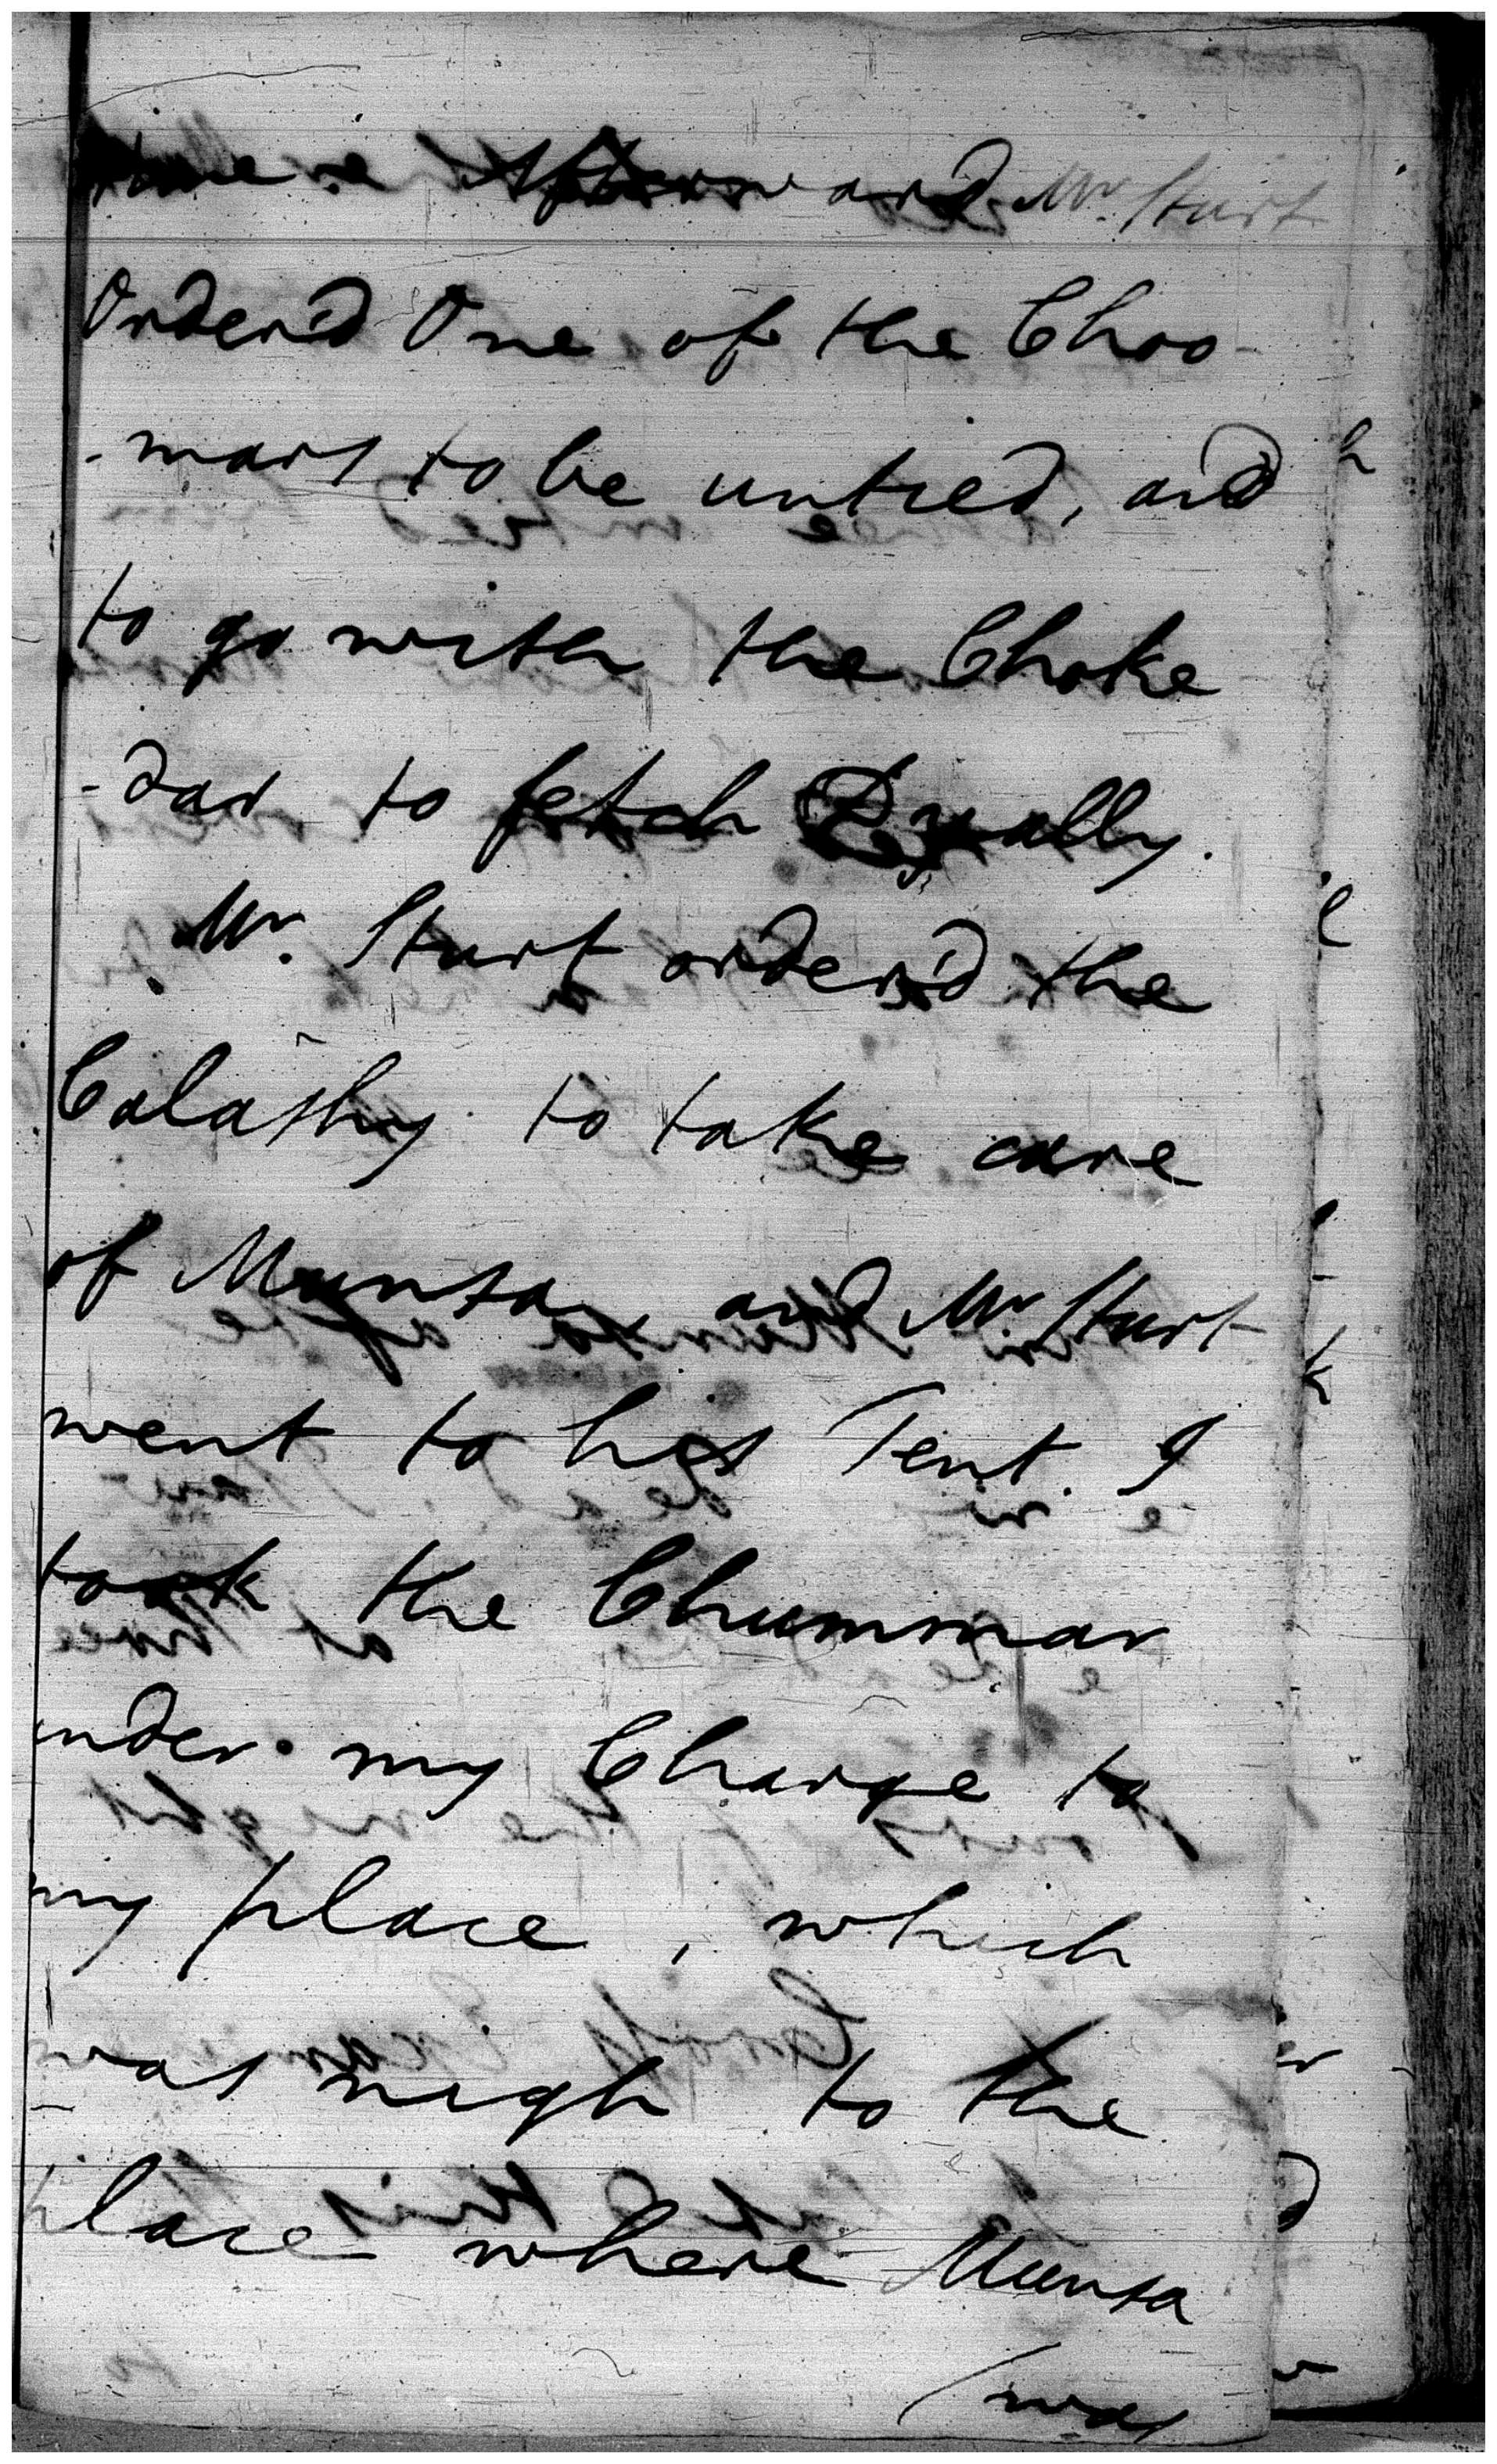 time afterward Mr. Sturt
Order'd One of the Choo-
-mars to be untied, and
to go with the Choke
-dar to fetch Dyally.
Mr. Sturt order'd the
Calashy to take care
of Munsa, and Mr. Sturt
went to his Tent. I
took the Chummar
under my Charge to
my place, which
was nigh to the
lace where Munsa
/was